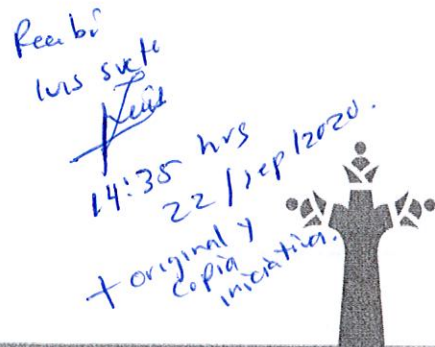 Recibí
Luis
14:35 hrs
22/sep/2020.
+ original y
copia
iniciativa.